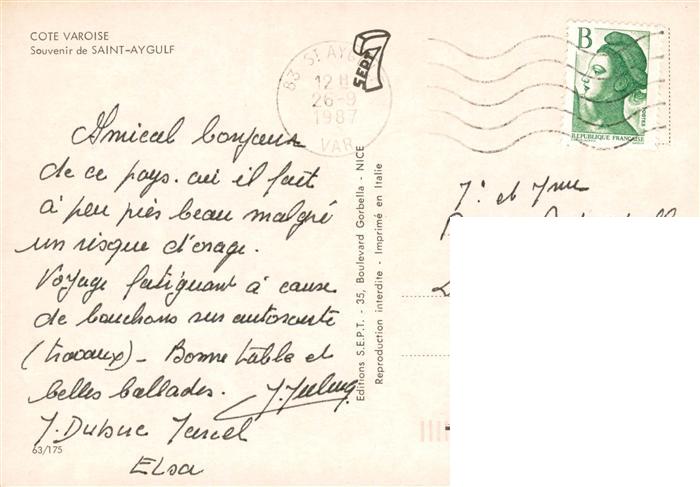 COTE VAROISE
Souvenir de SAINT-AYGULF
83 St AYGULF
12 H
26-9
1987
VAR
SEPT 7
B
REPUBLIQUE FRANÇAISE
Amical bonjour
de ce pays où il fait
à peu près beau malgré
un risque d'orage.
Voyage fatiguant à cause
de bouchons sur autoroute
(travaux) - Bonne table et
belles ballades.
J. Dubuc
Elsa
63/175
Editions S.E.P.T. - 35, Boulevard Gorbella - NICE
Reproduction interdite - Imprimé en Italie
et Mme